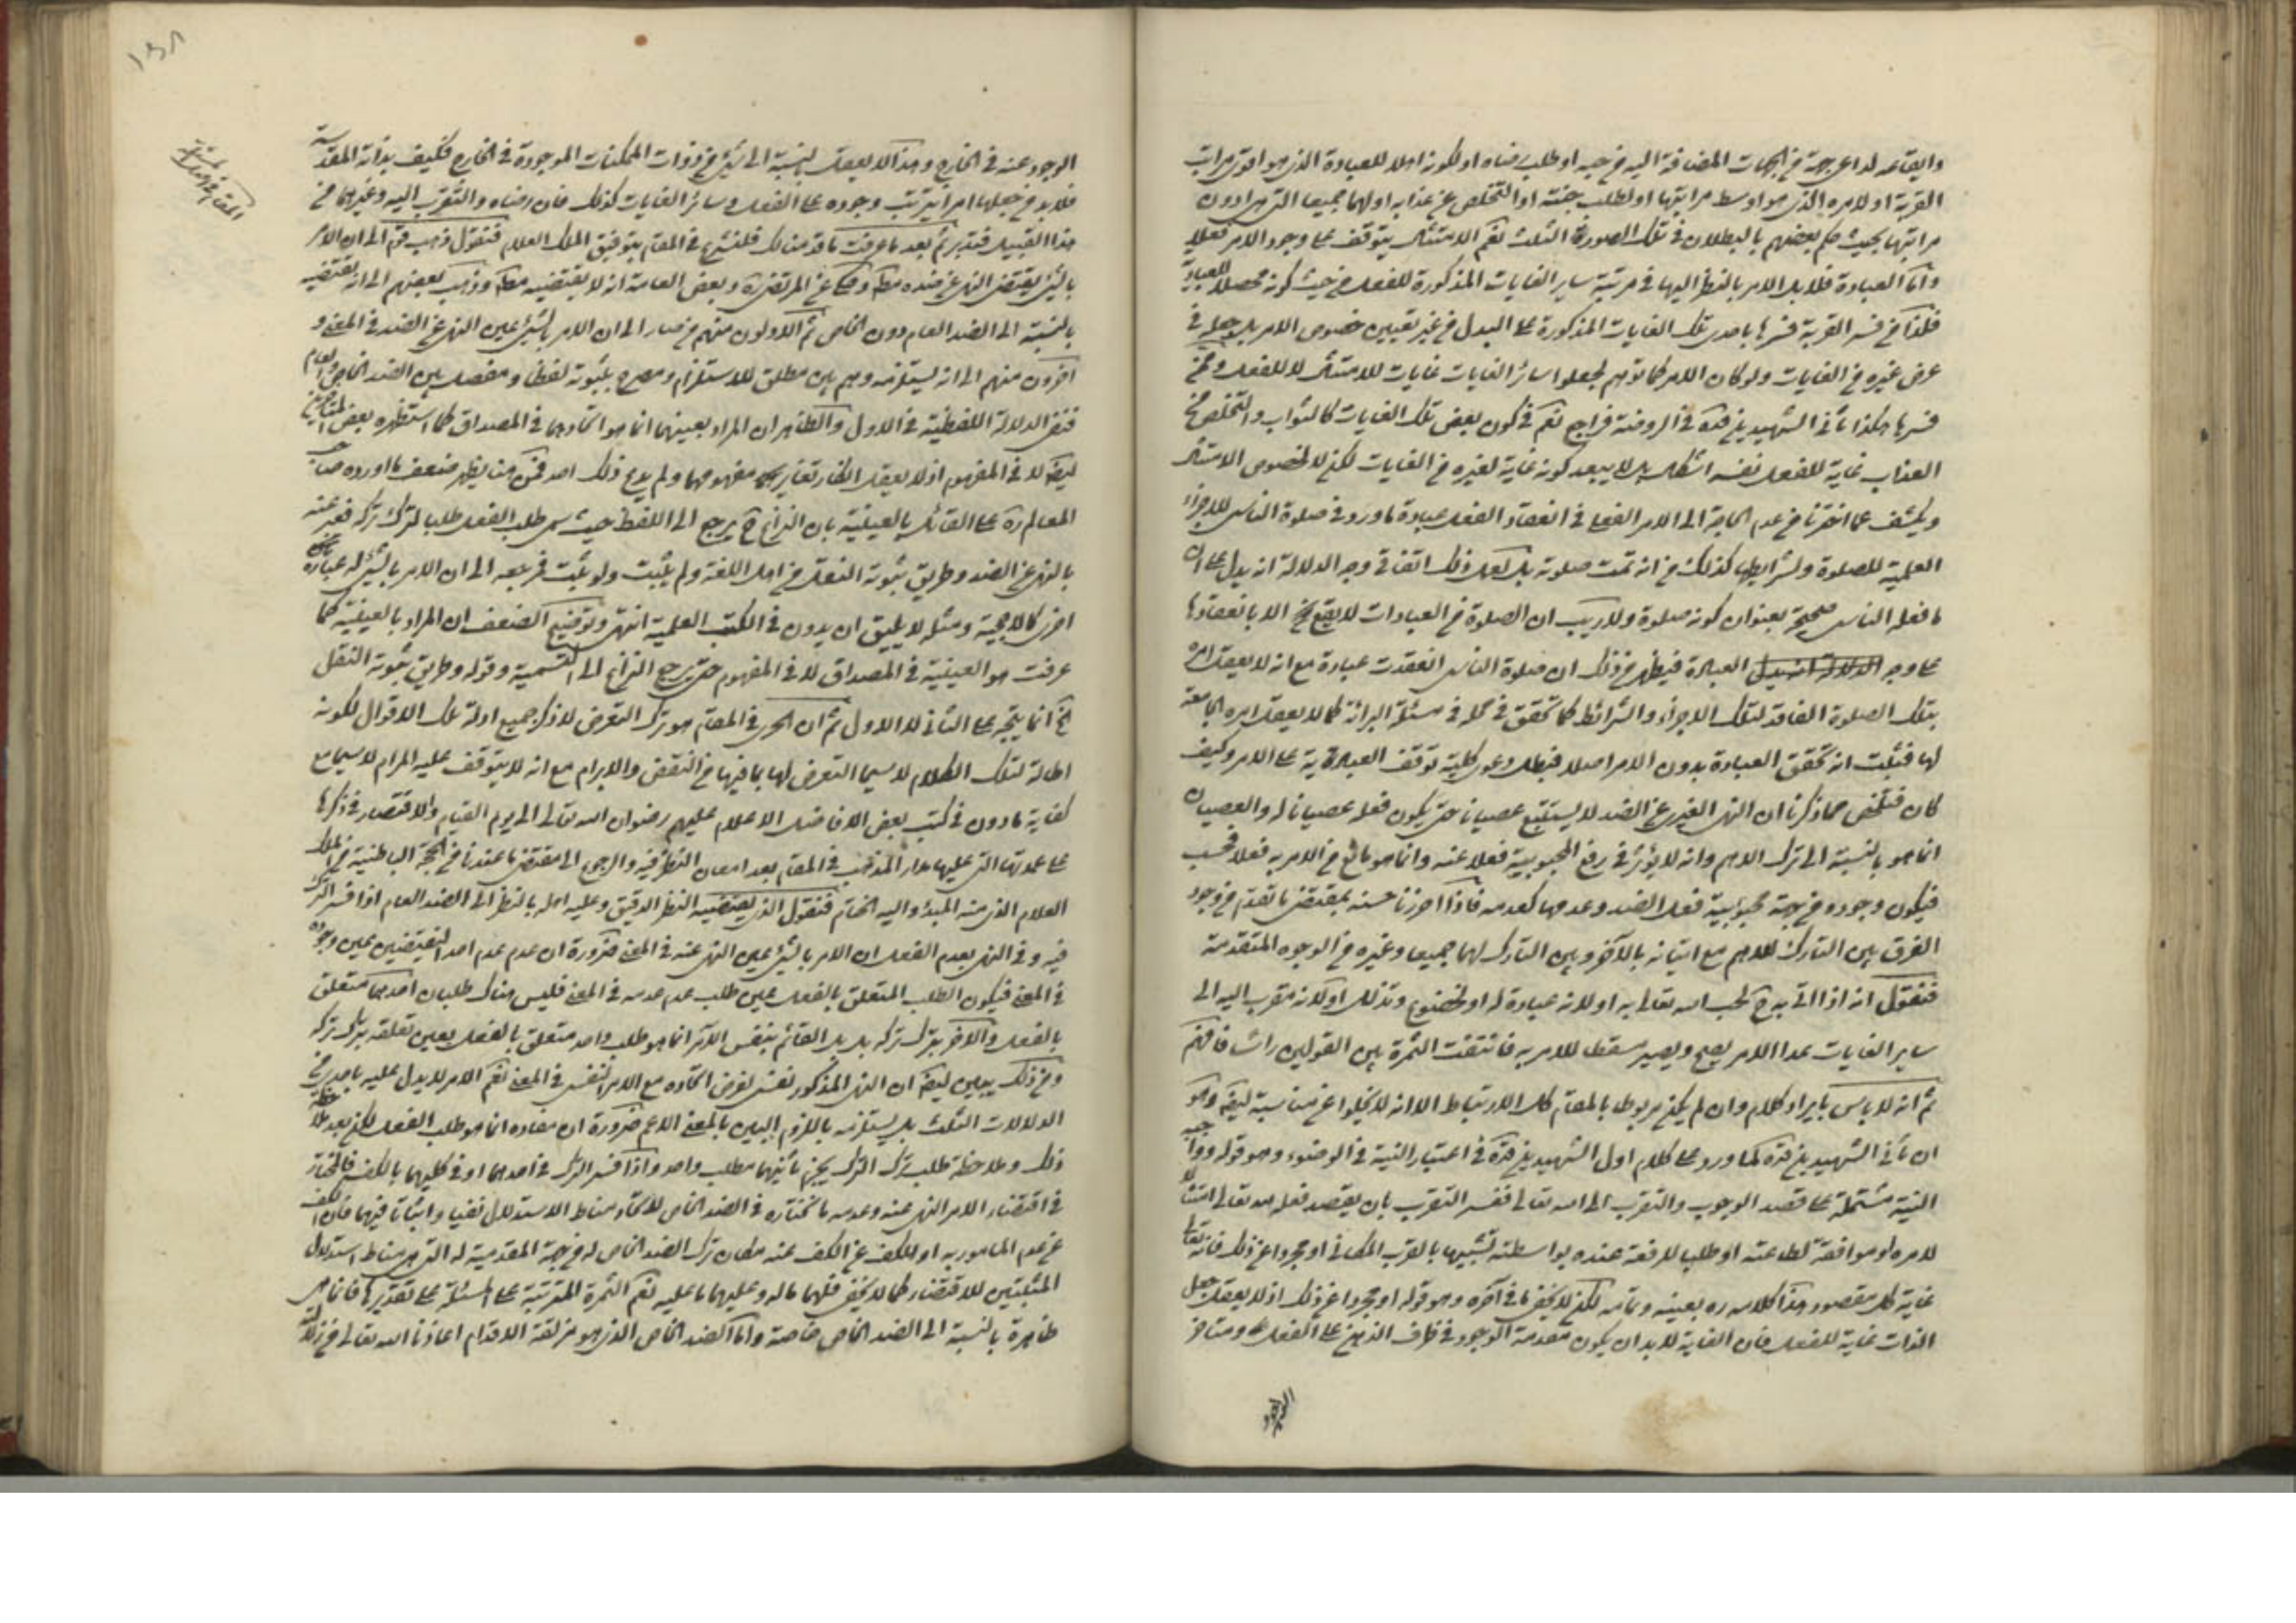 وايقاعه لداعى جهة من الجهات المضافة اليه من حبه او طلب رضاه او لكونه اهلا للعبادة الذى هو اقوى مراتب
القربة او لامره الذى هو اوسط مراتبها او لطلب جنته او التخلص عن عذابه او لهما جميعا التى هى ادون
مراتبها بحيث حكم بعضهم بالبطلان فى تلك الصورة الثلث نعم الامتثال يتوقف على وجود الامر فعلا
واما العبادة فلا بل الامر بالنظر اليها فى مرتبة ساير الغايات المذكورة للفعل من حيث كونه محصلا للعبادة
فلذا من فسر القربة فسرها باحدى تلك الغايات المذكورة على البدل من غير تعيين خصوص الامر بل جعله فى
عرض غيره من الغايات ولو كان الامر كما توهم لجعلوا سائر الغايات غايات للامتثال لا للفعل وممن
فسرها هكذا ثانى الشهيدين قده فى الروضة فراجع نعم فى كون بعض تلك الغايات كالثواب والتخلص من
العذاب غاية للفعل نفسه اشكال بل لا يبعد كونه غاية لغيره من الغايات لكن لا لخصوص الامتثال
ويكشف عما اخترنا من عدم الحاجة الى الامر الفعلى فى انعقاد الفعل عبادة ما ورد فى صلوة الناسى للاجزاء
العلمية للصلوة ولشرايطها كذلك من انه تمت صلوته بل لعل ذلك اتفاقى وجه الدلالة انه يدل على ان
ما فعله الناسى صحيحة بعنوان كونه صلوة ولا ريب ان الصلوة من العبادات لا يقع الا بانعقادها
على وجه العبادة فيظهر من ذلك ان صلوة الناسى انعقدت عبادة مع انه لا يعقل امره
بتلك الصلوة الفاقدة لتلك الاجزاء والشرائط كما تحقق فى محله فى مسئلة البرائة كما لا يعقل امره بالجامعة
لها فثبت انه تحقق العبادة بدون الامر اصلا فبطل دعوى كلية توقف العبادية على الامر وكيف
كان فتلخص مما ذكرنا ان النهى الغيرى عن الضد لا يستتبع عصيانا حتى يكون فعله عصيانا له والعصيان
انما هو بالنسبة الى ترك الاهم وانه لا يؤثر فى رفع المحبوبية فعلا عنه وانما هو مانع من الامر به فعلا فحسب
فيكون وجوده من جهة محبوبية فعل الضد وعدمها كعدمه فاذا احرزنا حسنه بمقتضى ما تقدم من وجود
الفرق بين التارك للاهم مع اتيانه بالآخر وبين التارك لهما جميعا وغيره من الوجوه المتقدمة
فنقول انه اذا اتى به ح لحب الله تعالى به او لانه عبادة له او لخضوع وتذلل او لانه مقرب اليه الى
ساير الغايات عدا الامر يصح ويصير مسقطا للامر به فانتفت الثمرة بين القولين راسا فافهم
ثم انه لا باس بايراد كلام وان لم يكن مربوطا بالمقام كل الارتباط الا انه لا يخلو عن مناسبة ايضا وهو
ان ثانى الشهيدين قده كما ورد على كلام اول الشهيدين قده فى اعتبار النية فى الوضوء وهو قوله وواجبه
النية مشتملة على قصد الوجوب والتقرب الى الله تعالى ففسر التقرب بان يقصد فعله لله تعالى امتثالا
لامره او موافقة لطاعته او طلبا للرفعة عنده بواسطته تشبيها بالقرب المكانى او مجردا عن ذلك فانه تعالى
غاية كل مقصود هذا كلامه ره بعينه وتمامه لكن لا يخفى ما فى آخره وهو قوله او مجردا عن ذلك اذ لا يعقل جعل
الذات غاية للفعل فان الغاية لا بد ان يكون متقدمة الوجود فى ظرف الذهن على الفعل ومتاخر
الوجود عنه فى الخارج وهذا لا يعقل بالنسبة الى شئ من ذوات الممكنات الموجودة فى الخارج فكيف بذاته المقدسة
فلا بد من جعلها امرا يترتب وجوده على الفعل وسائر الغايات كذلك فان رضاه والتقرب اليه وغيرهما من
هذا القبيل فتدبر ثم بعد ما عرفت ما قدمنا لك فلنشرع فى المقام بتوفيق الملك العلام فنقول ذهب قوم الى ان الامر
بالشئ يقتضى النهى عن ضده مطلقا وحكى عن المرتضى ره وبعض العامة انه لا يقتضيه مطلقا وذهب بعضهم الى انه يقتضيه
بالنسبة الى الضد العام دون الخاص ثم الاولون منهم من صار الى ان الامر بالشئ عين النهى عن الضد فى المعنى و
آخرون منهم الى انه يستلزمه وهم بين مطلق للاستلزام ومصرح بثبوته لفظا ومفصل بين الضد الخاص والعام
فنفى الدلالة اللفظية فى الاول والظاهر ان المراد بعينهما انما هو اتحادهما فى المصداق كما استظهره بعض المتاخرين
ايضا لا فى المفهوم اذ لا يعقل انكار تغاير مفهومهما ولم يدع ذلك احد فمن هنا يظهر ضعف ما اورده صاحب
المعالم ره على القائل بالعينية بان النزاع ح يرجع الى اللفظ حيث سمى طلب الفعل طلبا لترك تركه فعبر عنه
بالنهى عن الضد وطريق ثبوته النقل من اهل اللغة ولم يثبت ولو ثبت فمرجعه الى ان الامر بالشئ له عبارة
اخرى كالاحجية ومثله لا يليق ان يدون فى الكتب العلمية انتهى وتوضيح الضعف ان المراد بالعينية كما
عرفت هو العينية فى المصداق لا فى المفهوم حتى يرجع النزاع الى التسمية وقوله وطريق ثبوته النقل
الخ انما يتجه على الثانى لا الاول ثم ان الحرى فى المقام هو ترك التعرض لذكر جميع ادلة تلك الاقوال لكونه
اطالة لتلك الكلام لا سيما التعرض لها بما فيها من النقض والابرام مع انه لا يتوقف عليه المرام لا سيما مع
كفاية ما دون فى كتب بعض الافاضل الاعلام عليهم رضوان الله تعالى الى يوم القيام والاقتصار فى ذكرها
على عمدتها التى عليها مدار المذهب فى المقام بعد امعان النظر فيه والرجوع الى مقتضى ما عندنا من الحجة الباطنية من الملك
العلام الذى منه المبدء واليه الختام فنقول الذى يقتضيه النظر الدقيق وعليه اهله بالنظر الى الضد العام اذا فسر الترك
فيه وفى النهى بعدم الفعل ان الامر بالشئ عين النهى عنه فى المعنى ضرورة ان عدم عدم احد النقيضين عين وجوده
فى المعنى فيكون الطلب المتعلق بالفعل عين طلب عدم عدمه فى المعنى فليس هناك طلبان احدهما متعلق
بالفعل والآخر بترك تركه بل القائم بنفس الآمر انما هو طلب واحد متعلق بالفعل بعين تعلقه بترك تركه
ومن ذلك يبين ايضا ان النهى المذكور نفسى لفرض اتحاده مع الامر النفسى فى المعنى نعم الامر لا يدل عليه باحدى من
الدلالات الثلث بل يستلزمه باللزوم البين بالمعنى الاعم ضرورة ان مفاده انما هو طلب الفعل لكن بعد ملاحظة
ذلك وملاحظة طلب ترك الترك يجزم بانهما مطلب واحد واذا فسر الترك فى احدهما او فى كليهما بالكف فالمختار
فى اقتضاء الامر النهى عنه وعدمه ما نختاره فى الضد الخاص لاتحاد مناط الاستدلال نفيا واثباتا فيهما فان الكف
عن عدم المامور به او للكف عن الكف عنه مكان ترك الضد الخاص له من جهة المقدمية له التى هى مناط استدلال
المثبتين للاقتضاء كما لا يخفى فلهما ما له وعليهما ما عليه نعم الثمرة المترتبة على المسئلة على تقديرها فانما هى
ظاهرة بالنسبة الى الضد الخاص خاصة واما الضد الخاص الذى هو مزلقة الاقدام اعاذنا الله تعالى من زلة